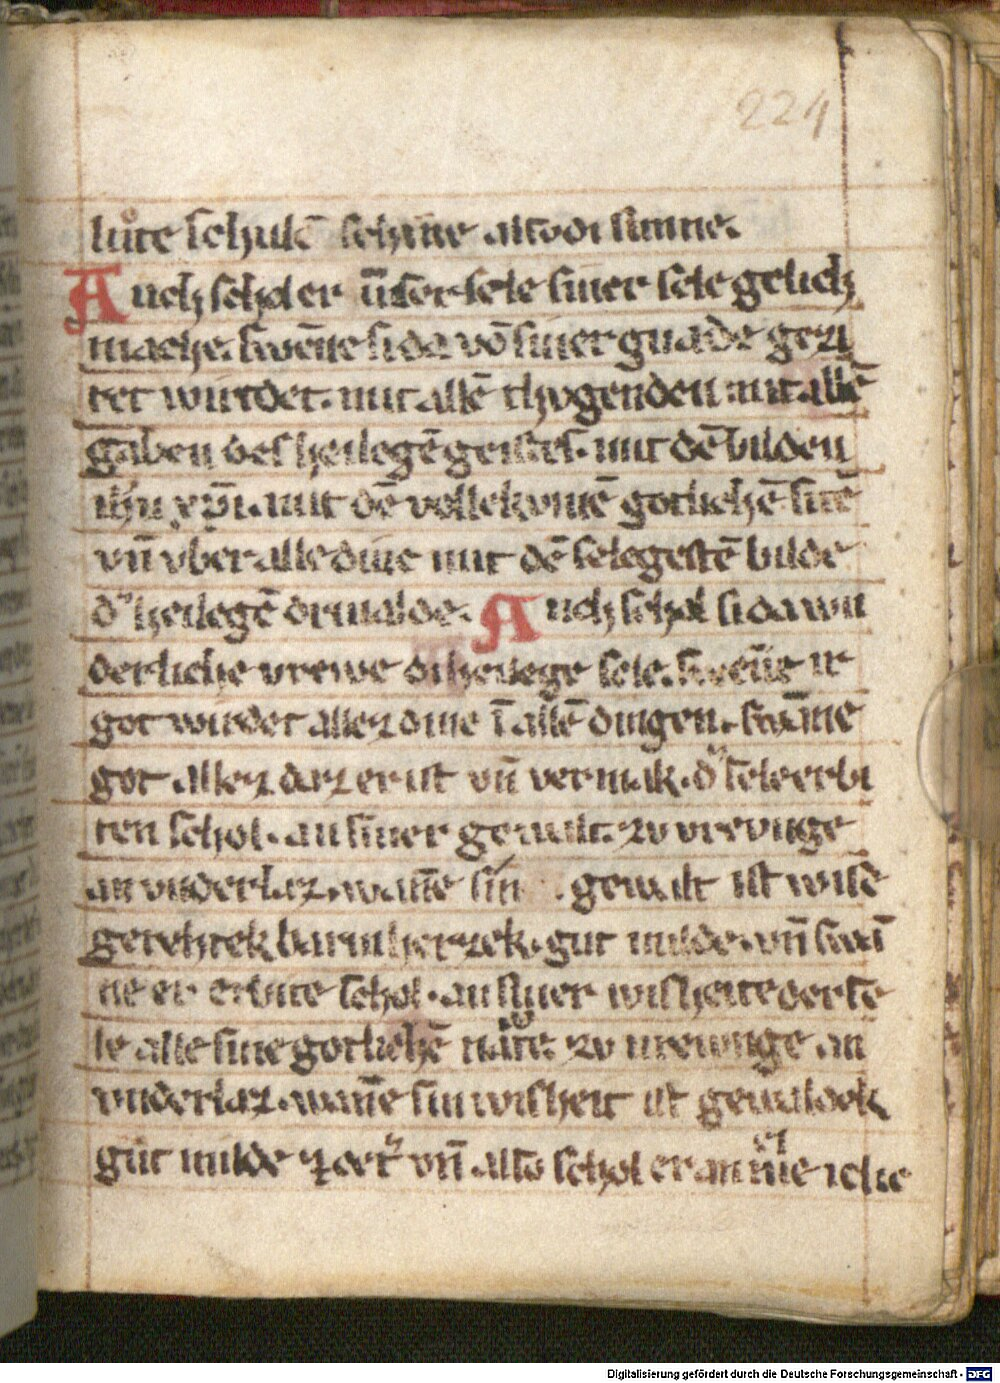 224
lůte schulē schine alsodi sunne.
Auch schol er ūser sele siner sele gelich
mache. swēne si da vō siner gnade gezi
ret wirdet. mit allē thvgenden mit allē
gaben des heilegē geistes. mit dē bilden
ihu xp̄i. mit dē vollekvmē gotlichē site
vn̄ vber alle dine mit dē selegestē bilde
d' heilegē drivalde. Auch schol si da wn
derliche vrewe di heilege sele. swēne ir
got wirdet allez dine ī allē dingen. swāne
got allez daz er ist vn̄ vermak. d' sele erbi
ten schol. an siner gewalt. zv vrevnge
an vnderlaz. wan̄e sin gewalt ist wise
gerehtek barmherzek. gut milde. vn̄ swā
ne er erbite schol. an siner wisheite der se
le alle sine gotlichē natv̊re. zv vrewnge an
vnderlaz. wan̄e sin wisheit ist gewaldek
gůt milde ⁊ cet' vn̄ also schol er an iclie
Digitalisierung gefördert durch die Deutsche Forschungsgemeinschaft - DFG